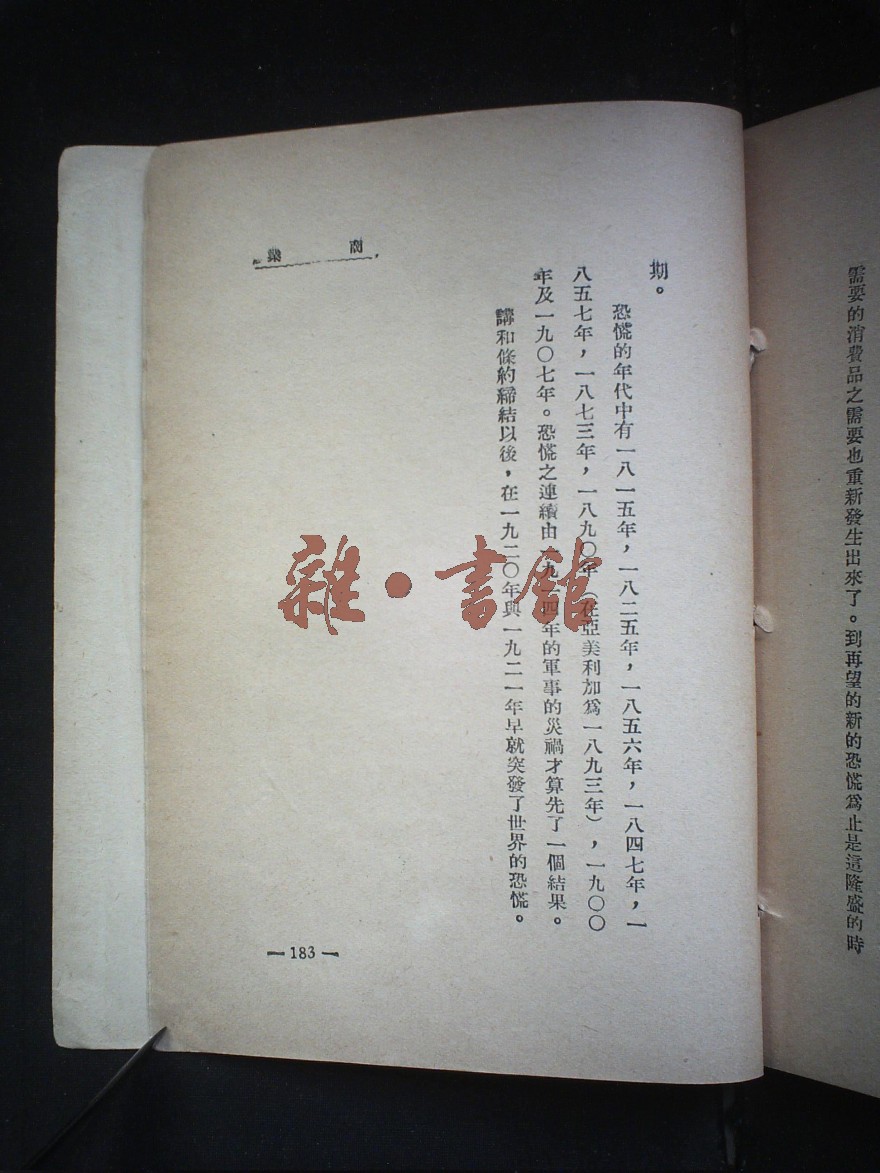 需要的消費品之需要也重新發生出來了。到再望的新的恐慌爲止是這隆盛的時
期。
恐慌的年代中有一八一五年，一八二五年，一八五六年，一八四七年，一
八五七年，一八七三年，一八九〇年（在亞美利加爲一八九三年），一九〇〇
年及一九〇七年。恐慌之連續由一九一四年的軍事的災禍才算先了一個結果。
講和條約締結以後，在一九二〇年與一九二一年早就突發了世界的恐慌。
商業
— 183 —
雜·書館